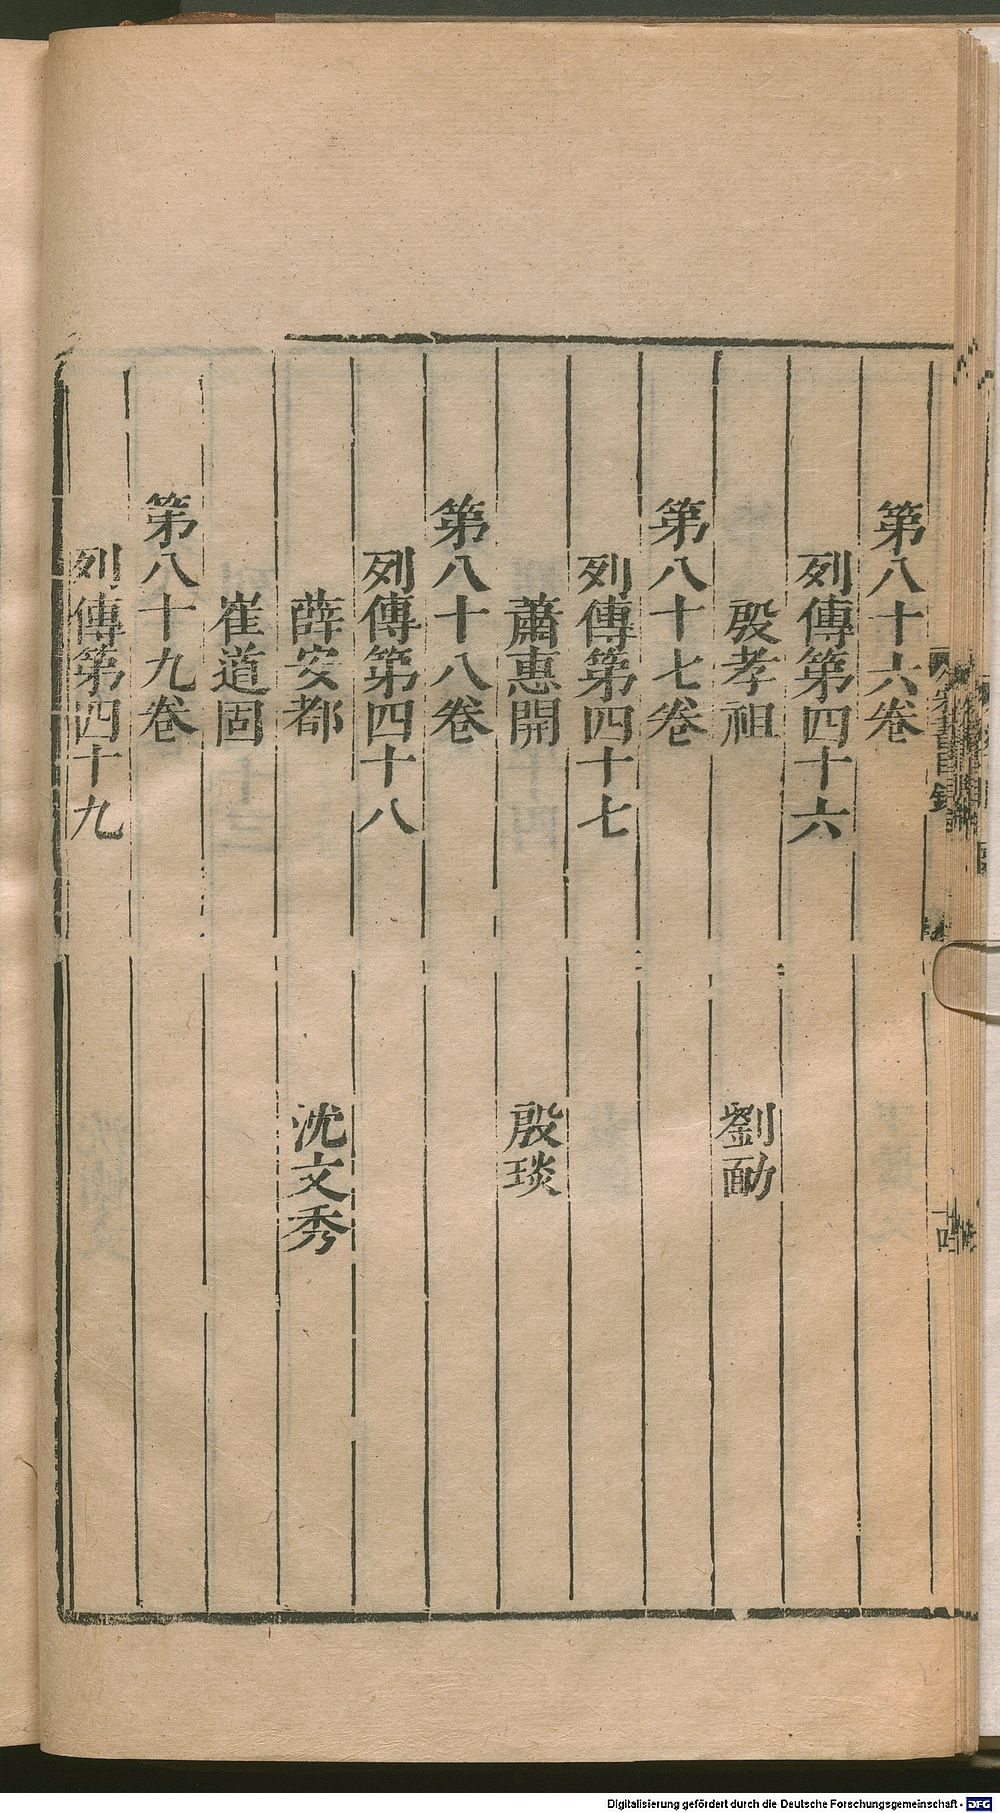 第八十六卷
列傳第四十六
殷孝祖 劉勔
第八十七卷
列傳第四十七
蕭惠開 殷琰
第八十八卷
列傳第四十八
薛安都 沈文秀
崔道固
第八十九卷
列傳第四十九
宋書目錄
Digitalisierung gefördert durch die Deutsche Forschungsgemeinschaft - DFG